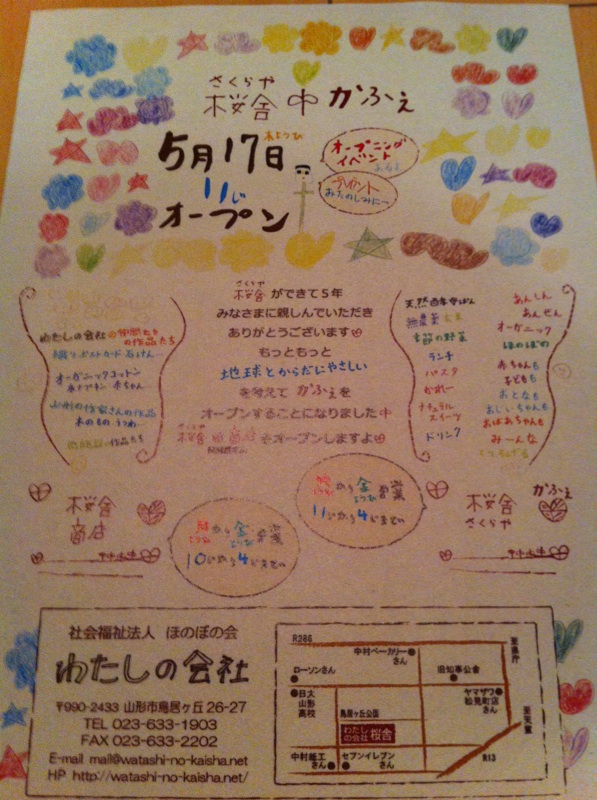 さくらや
桜舎 中 かふぇ
5月17日 木ようび
11じ
オープン
オープニング
イベント
あるよ
プレゼント
おたのしみに〜
わたしの会社の仲間たち
の作品たち
オーガニックコットン
布ナプキン 赤ちゃん…
山形の作家さんの作品
木のもの うつわ…
作品たち
さくらや
桜舎ができて5年
みなさまに親しんでいただき
ありがとうございます♡
もっともっと
地球とからだにやさしい
を考えて かふぇを
オープンすることになりました中
さくらや
桜舎 商店もオープンしますよ♡
天然酵母ぱん
無農薬玄米
季節の野菜
ランチ
パスタ
かれー
ナチュラル
スイーツ
ドリンク
あんしん
あんぜん
オーガニック
ほのぼの
赤ちゃんも
子どもも
おとなも
おじいちゃんも
おばあちゃんも
みーんな
桜舎
商店
から金営業
10じから4じまでの
から金営業
11じから4じまでの
桜舎 かふぇ
さくらや
社会福祉法人 ほのぼの会
わたしの会社
〒990-2433 山形市鳥居ヶ丘26-27
TEL 023-633-1903
FAX 023-633-2202
E-mail mail@watashi-no-kaisha.net
HP http://watashi-no-kaisha.net/
R286
至県庁
中村ベーカリー
さん
ローソンさん
旧知事公舎
日大
山形
高校
鳥居ヶ丘公園
ヤマザワ
松見町店
さん
至天童
わたし
の会社 桜舎
中村紙工
さん
セブンイレブン
さん
R13